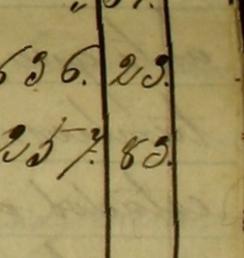 636. 23.
257. 83.